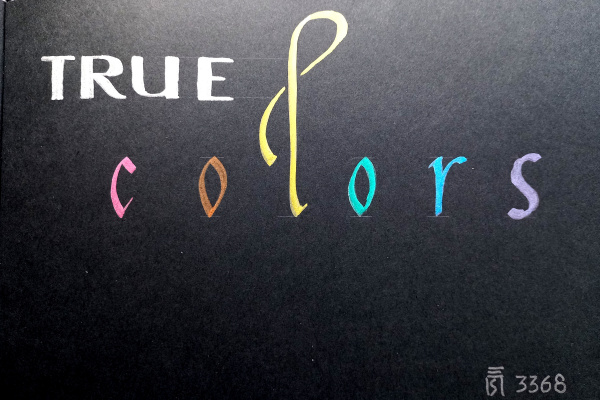 TRUE
colors
3368